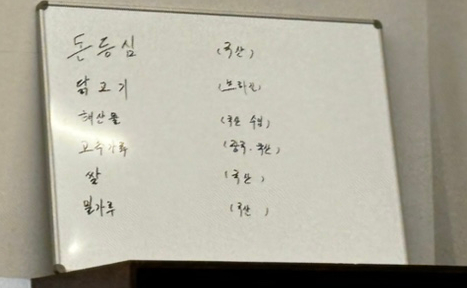 돈등심 (국산)
닭고기 (브라질)
해산물 (국산 수입)
고추가루 (중국, 국산)
쌀 (국산)
밀가루 (국산)